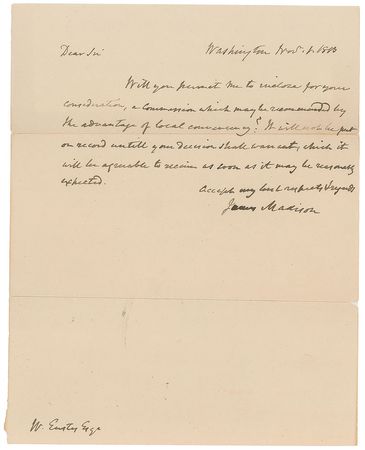 Dear Sir Washington Nov. 1803
Will you permit me to inclose for your
consideration, a commission which may be recommended by
the advantage of local conveniency? It will not be put
on record untill your decision shall warrant, which it
will be agreeable to receive as soon as it may be reasonably
expected.
Accept my best respects & regards
James Madison
W. Eustis Esqr